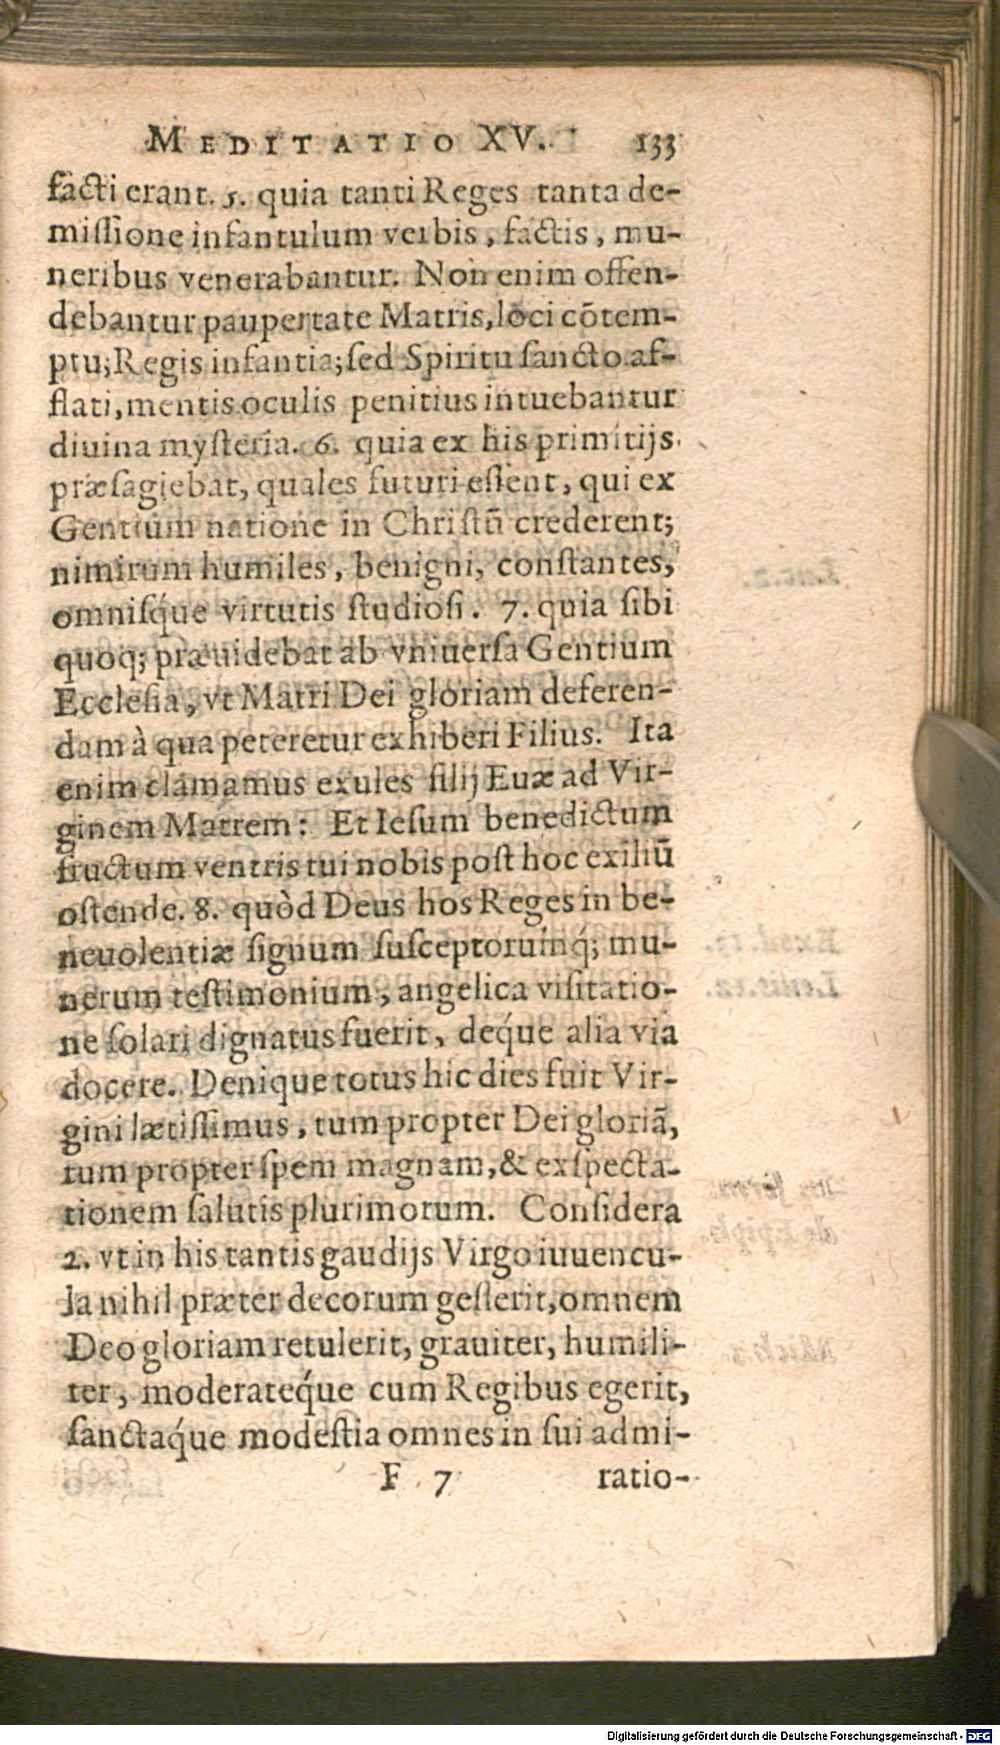 MEDITATIO XV. 133
facti erant. 5. quia tanti Reges tanta de-
miſſione infantulum verbis, factis, mu-
neribus venerabantur. Non enim offen-
debantur paupertate Matris, loci cõtem-
ptu; Regis infantia; ſed Spiritu ſancto af-
flati, mentis oculis penitius intuebantur
diuina myſteria. 6. quia ex his primitijs
præſagiebat, quales futuri eſſent, qui ex
Gentium natione in Chriſtū crederent;
nimirum humiles, benigni, conſtantes,
omniſq́ue virtutis ſtudioſi. 7. quia ſibi
quoq; præuidebat ab vniuerſa Gentium
Eccleſia, vt Matri Dei gloriam deferen-
dam à qua peteretur exhiberi Filius. Ita
enim clamamus exules filij Euæ ad Vir-
ginem Matrem: Et Ieſum benedictum
fructum ventris tui nobis poſt hoc exiliū
oſtende. 8. quòd Deus hos Reges in be-
neuolentiæ ſignum ſuſceptorumq́; mu-
nerum teſtimonium, angelica viſitatio-
ne ſolari dignatus fuerit, deq́ue alia via
docere. Denique totus hic dies fuit Vir-
gini lætiſſimus, tum propter Dei gloriã,
tum propter ſpem magnam, & exſpecta-
tionem ſalutis plurimorum. Conſidera
2. vt in his tantis gaudijs Virgo iuuencu-
la nihil præter decorum geſſerit, omnem
Deo gloriam retulerit, grauiter, humili-
ter, moderateq́ue cum Regibus egerit,
ſanctaq́ue modeſtia omnes in ſui admi-
F 7 ratio-
Digitalisierung gefördert durch die Deutsche Forschungsgemeinschaft - DFG